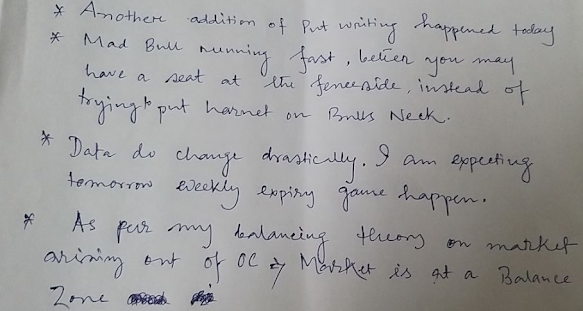 * Another addition of Put writing happened today
* Mad Bull running fast, better you may
have a seat at the fenceside, instead of
trying to put harnet on Bulls Neck.
* Data do change drastically. I am expecting
tomorrow weekly expiry game happen.
* As per my balancing theory on market
arising out of OC => Market is at a Balance
Zone